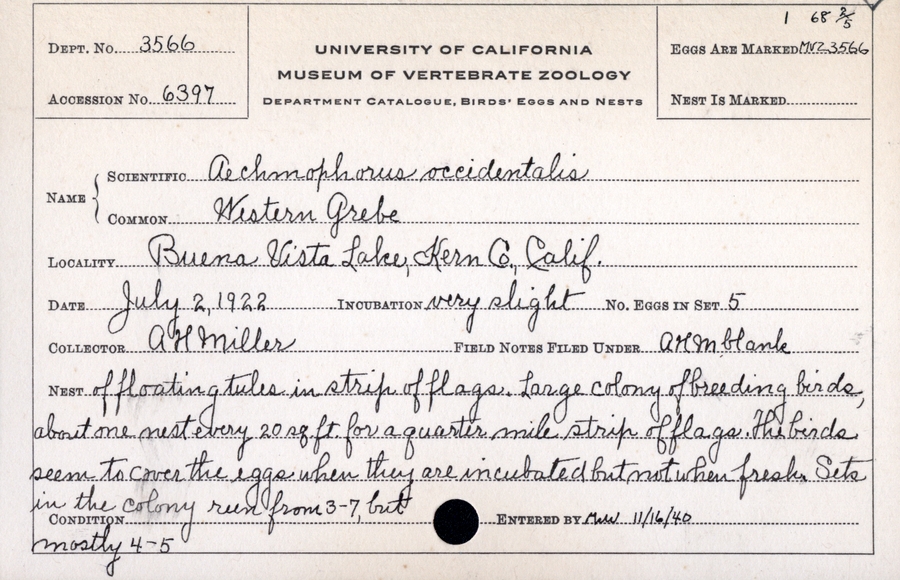 1 68 2/5
Dept. No. 3566
UNIVERSITY OF CALIFORNIA
MUSEUM OF VERTEBRATE ZOOLOGY
Department Catalogue, Birds' Eggs and Nests
Eggs Are Marked MVZ 3566
Accession No. 6397
Nest Is Marked
Name
Scientific Aechmophorus occidentalis
Common Western Grebe
Locality Buena Vista Lake, Kern Co., Calif.
Date July 2, 1922 Incubation very slight No. Eggs in Set 5
Collector A H Miller Field Notes Filed Under AHM blank
Nest of floating tules in strip of flags. Large colony of breeding birds,
about one nest every 20 sq. ft. for a quarter mile strip of flags. The birds
seem to cover the eggs when they are incubated but not when fresh. Sets
in the colony run from 3-7, but
Condition Entered by 11/16/40
mostly 4-5